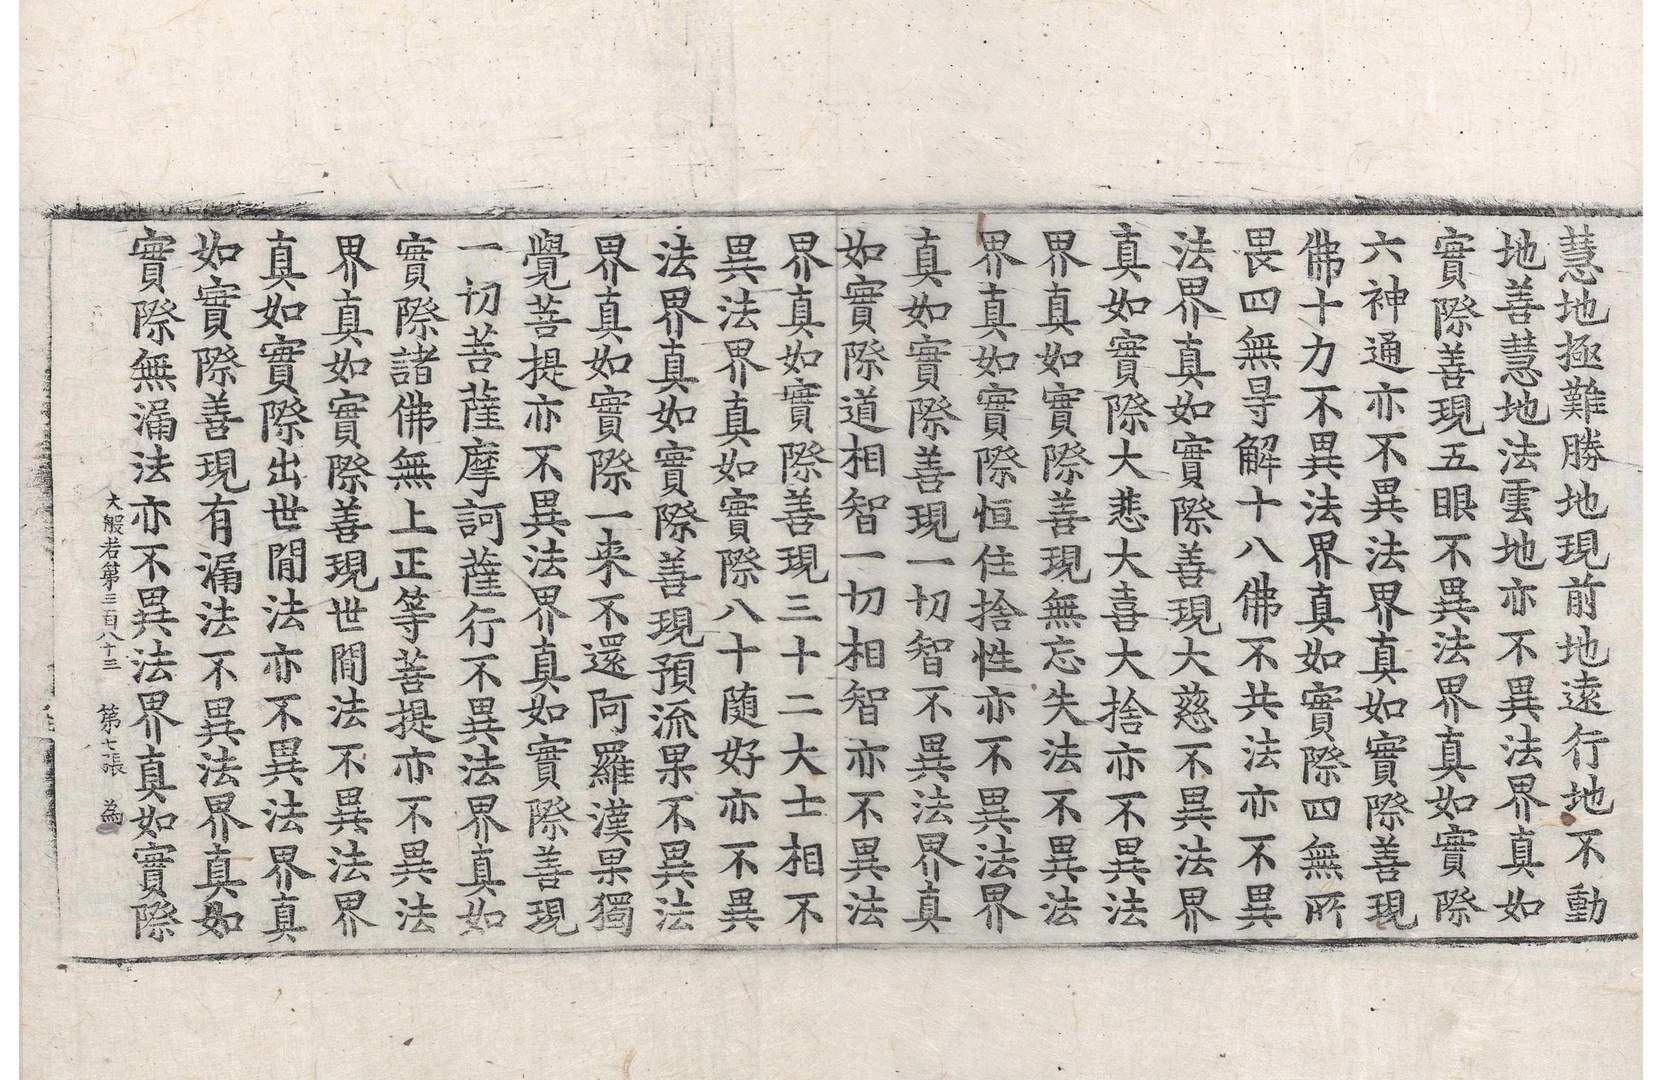 慧地極難勝地現前地遠行地不動
地善慧地法雲地亦不異法界真如
實際善現五眼不異法界真如實際
六神通亦不異法界真如實際善現
佛十力不異法界真如實際四無所
畏四無㝵解十八佛不共法亦不異
法界真如實際善現大慈不異法界
真如實際大悲大喜大捨亦不異法
界真如實際善現無忘失法不異法
界真如實際恒住捨性亦不異法界
真如實際善現一切智不異法界真
如實際道相智一切相智亦不異法
界真如實際善現三十二大士相不
異法界真如實際八十随好亦不異
法界真如實際善現預流果不異法
界真如實際一来不還阿羅漢果獨
覺菩提亦不異法界真如實際善現
一切菩薩摩訶薩行不異法界真如
實際諸佛無上正等菩提亦不異法
界真如實際善現世間法不異法界
真如實際出世間法亦不異法界真
如實際善現有漏法不異法界真如
實際無漏法亦不異法界真如實際
大般若第三百八十三 第七張 為